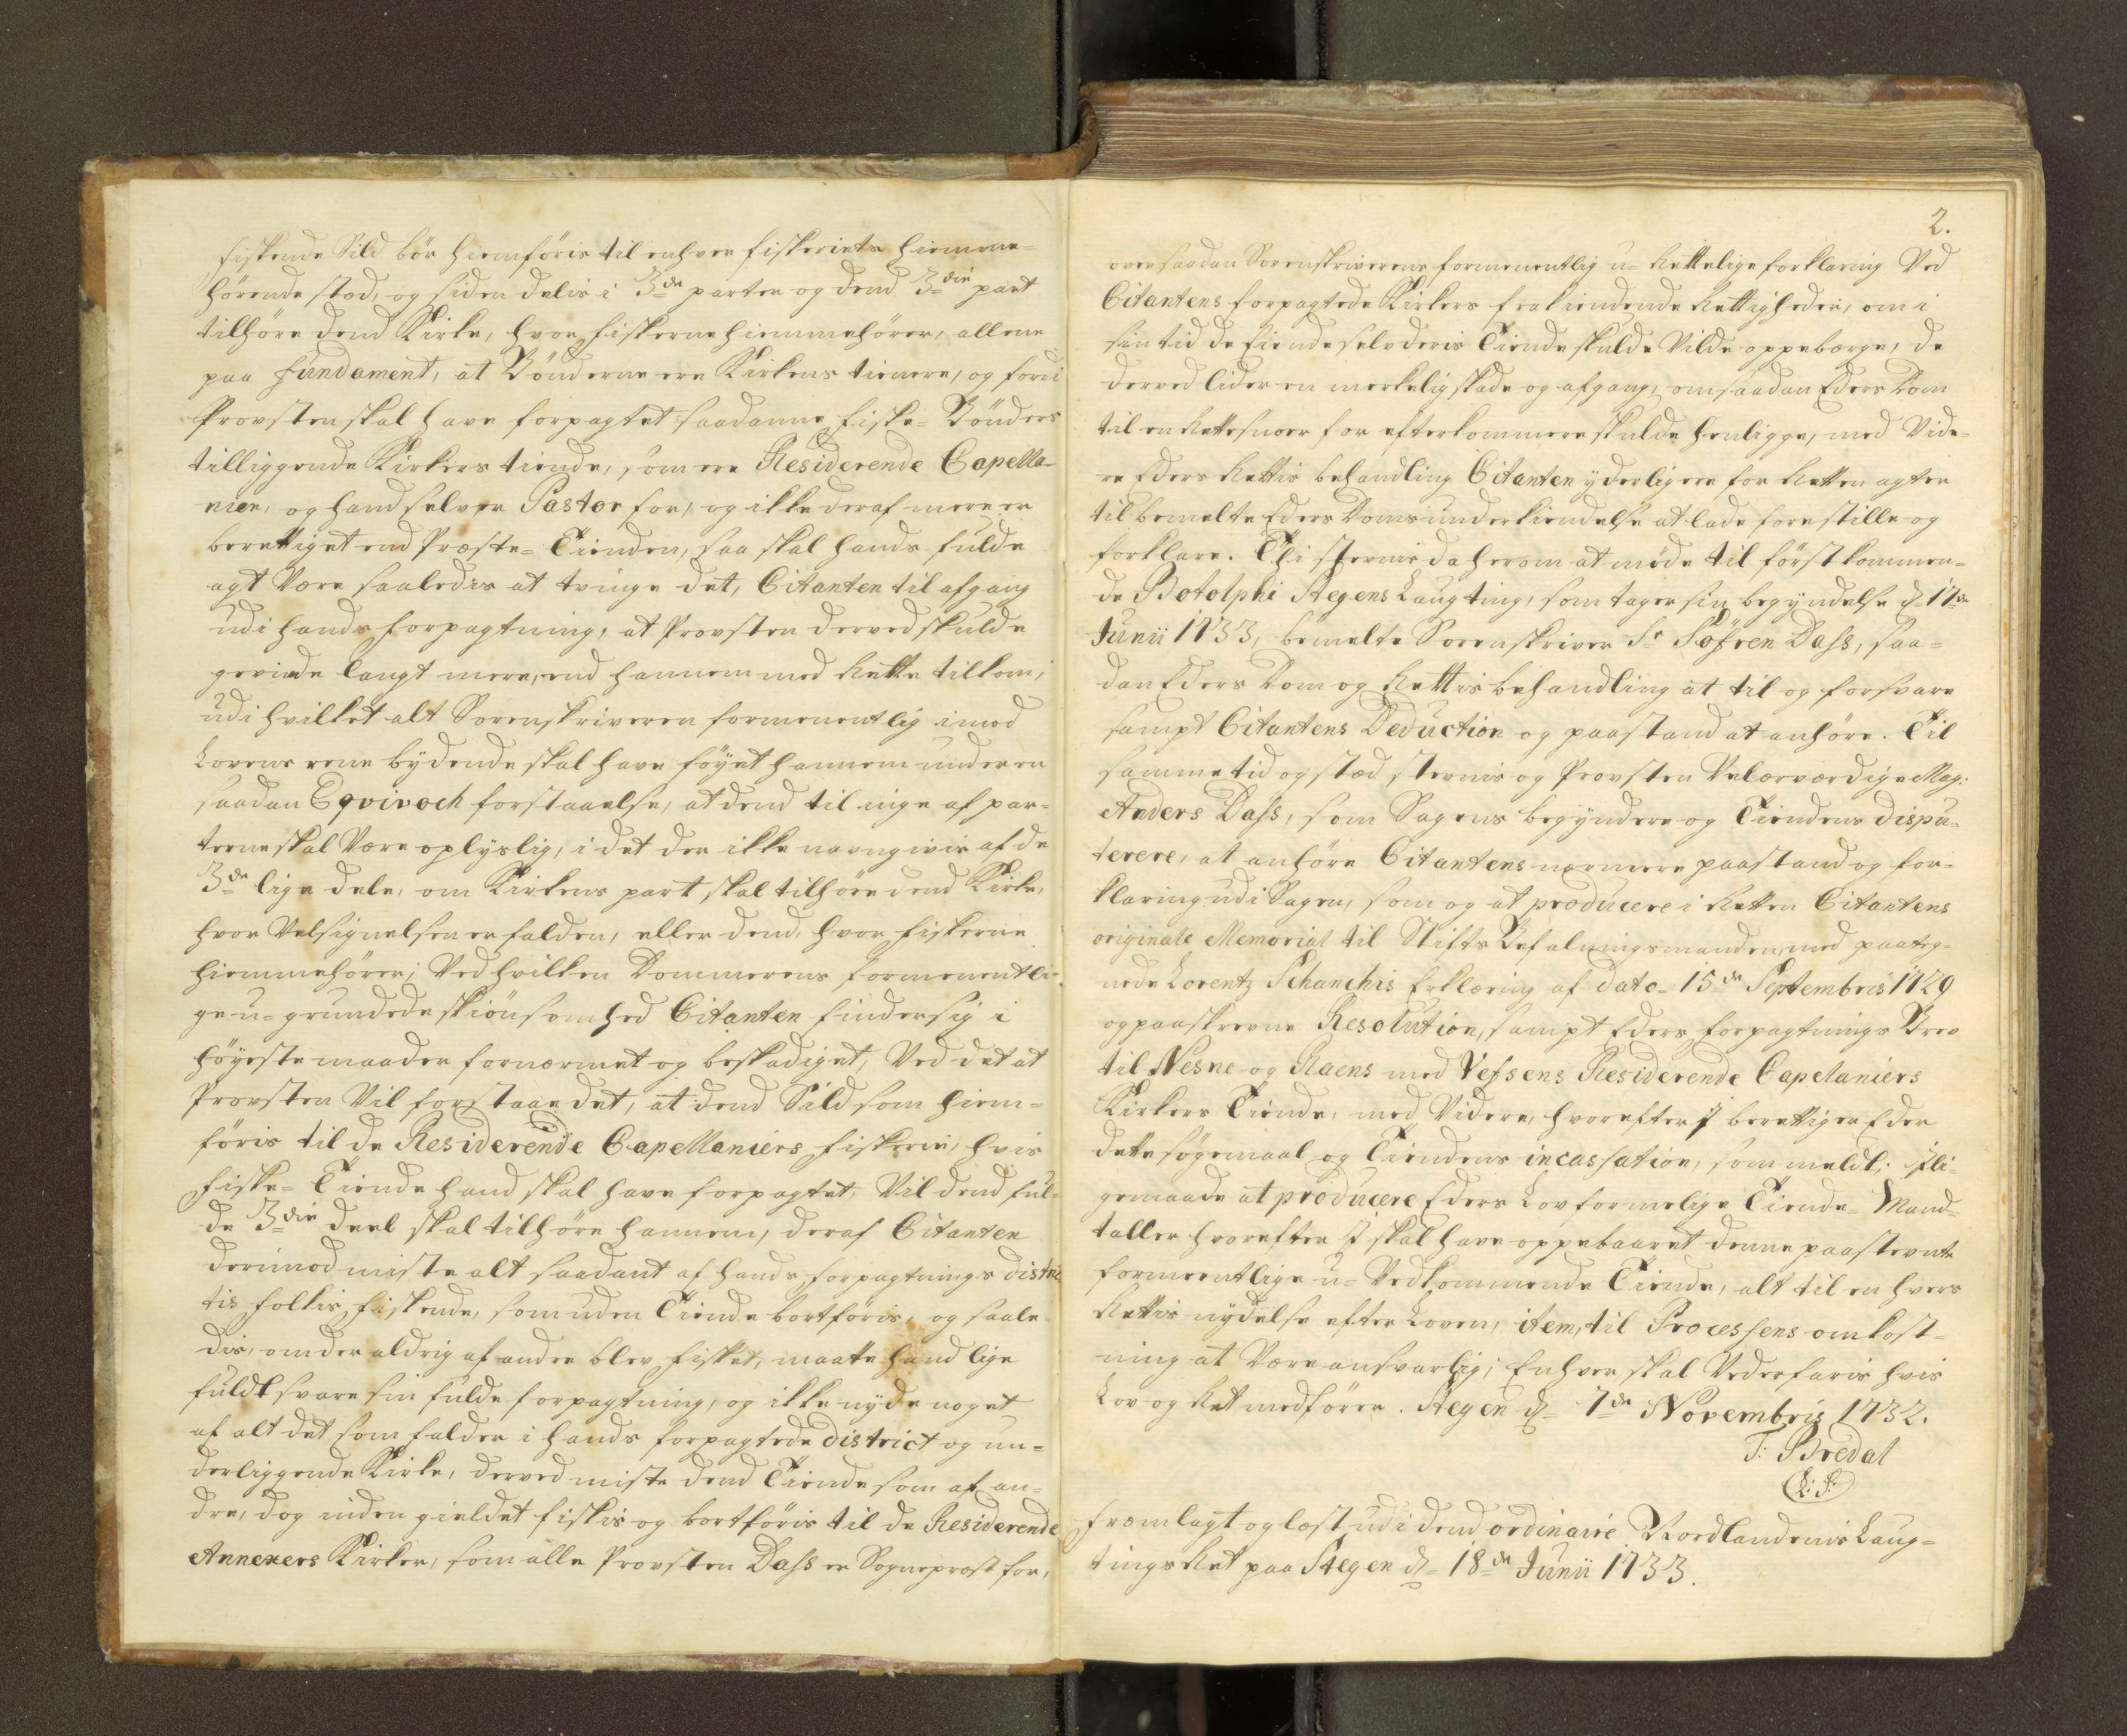 fiskende Sild bör hiemföris til enhver fiskeriets hiemme-
hörende stæd, og siden delis i 3de parter og dend 3die part
tilhöre dend Kirke, hvor fiskerne hiemmehörer, allene
paa fundament, at Bönderne ere Kirkens tienere, og fordi
Provsten skal have forpagtet saadanne fiske-Bönders
tilliggende Kirkers tiende, som ere Residerende Capella-
nier, og hand selv er Pastor for, og ikke deraf mere er
berettiget end Præste-Tienden, saa skal hands fulde
agt være saaledis at tvinge det, Citanten til afgang
udi hands forpagtning, at Provsten derved skulde
gevinde langt mere, end hannem med Rette tilkom,
udi hvilket alt Sorenskriveren formenentlig imod
Lovens rene bydende skal have föyet hannem under en
saadan Eqvivoch forstaaelse, at dend til inge af par-
terne skal være oplyslig, i det der ikke navngivis af de
3de lige dele, om Kirkens part skal tilhöre dend Kirke,
hvor Velsignelsen er falden, eller dend, hvor fiskerne
hiemmehörer; Ved hvilken Dommerens formenentli-
ge u-grundede skiönsomhed Citanten finder sig i
höyeste maader fornærmet og beskadiget, Ved det at
Provsten Vil forstaae det, at dend Sild som hiem-
föris til de Residerende Capellaniers fiskerie, hvis
fiske-Tiende hand skal have forpagtet, Vil dend ful-
de 3die deel skal tilhöre hannem, deraf Citanten
derimod miste alt saadant af hands forpagtnings distric
tis folkis fiskende, som uden Tiende bortföris, og saale
dis, om der aldrig af andre blev fisket, maatte hand lige
fuldt svare sin fulde forpagtning, og ikke nyde noget
af alt det som falder i hands forpagtede district og un-
derliggende Kirke, derved miste dend Tiende som af an-
dre, dog inden gieldet fiskis og bortföris til de Residerende
Annexers Kirker, som alle Provsten Dass er Sognepræst for,
2.
over saadan Sorenskriverens formenentlig u-Rettelige forklaring Ved
Citantens forpagtede Kirkers frakiendende Rettigheder, om i
sin tid de Eiende selv deris Tiende skulde Vilde oppebærge, de
derved lider en merkelig skade og afgang, om saadan Eders Dom
til en Rettesnoer for efterkommere skulde henligge, med Vide-
re Eders Rettis behandling Citanten yderligere for Retten agter
til bemelte Eders Doms underkiendelse at lade forestille og
forklare. Thi stevnis da herom at möde til förstkommen-
de Botolphi Stegens Laugting, som tager sin begyndelse d. 17de
Junii 1733, bemelte Sorenskriver Sr Söfren Dass, saa-
dan Eders Dom og Rettis behandling at til og forsvare
sampt Citantens Deduction og paastand at anhöre. Til
samme tid og stæd stevnis og Provsten Velærværdige Mag:
Anders Dass, som Sagens begyndere og Tiendens dispu-
terere, at anhöre Citantens nærmere paastand og for-
klaring udi Sagen, som og at producere i Retten Citantens
originale Memorial til Stifts Befalningsmanden, med paateg-
nede Lorentz Schanchis Erklæring af dato 15de Septembris 1729
og paaskrevne Resolution, sampt Eders forpagtnings Brev
til Nesne og Raens med Vefsens Residerende Capelaniers
Kirkers Tiende, med Videre, hvorefter I berettiger Eder
dette sögemaal og Tiendens incassation, som meldt; Ili-
gemaade at producere Eders Lovformelige Tiende-Mand-
taller hvorefter I skal have oppebaaret denne paastevnte
formeentlige u-Vedkommende Tiende, alt til en hvers
Rettis nydelse efter Loven, item, til Processens omkost-
ning at være ansvarlig; Enhver skal Vederfaris hvis
Lov og Ret medförer. Stegen d. 7de Novembris 1732.
T: Bredal
(L:S:)
fremlagt og læst udi dend ordinaire Nordlandenis Laug-
tings Ret paa Stegen d. 18de Junii 1733.